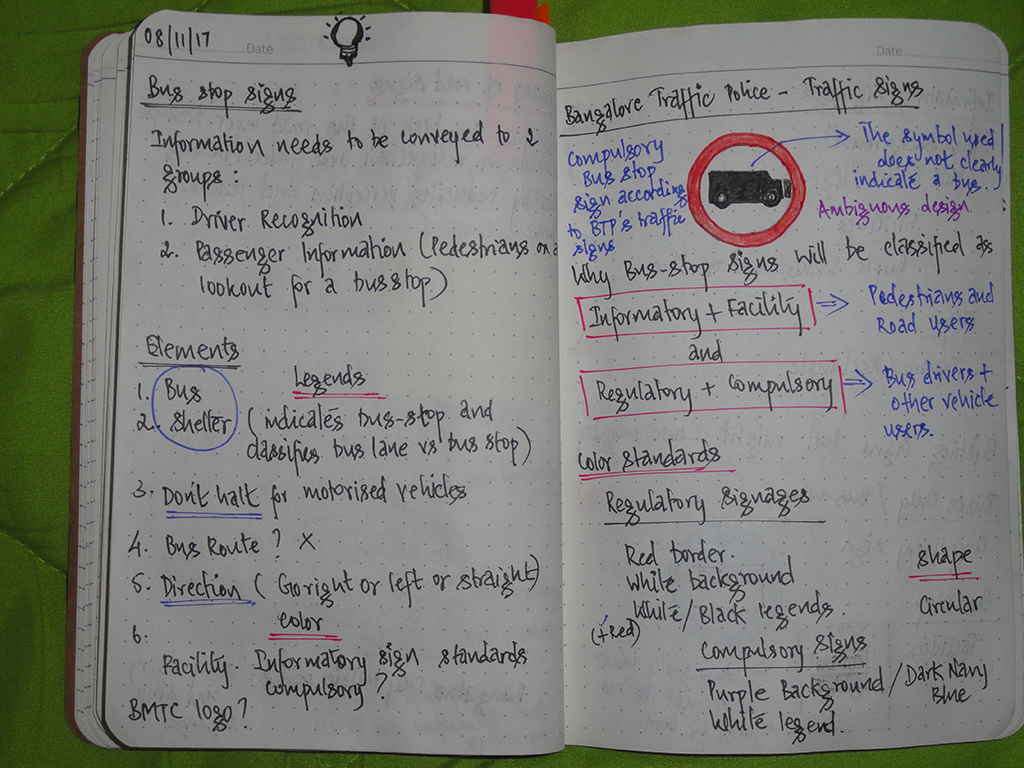 08/11/17
Date
Bus stop signs
Information needs to be conveyed to 2
groups:
1. Driver Recognition
2. Passenger Information (Pedestrians on a
lookout for a bus stop)
Elements
Legends
1. Bus
2. Shelter (indicates bus-stop and
classifies bus lane vs bus stop)
3. Don't halt for motorised vehicles
4. Bus Route? X
5. Direction (Go right or left or straight)
Color
6.
Facility. Informatory sign standards
Compulsory?
BMTC logo?
Date
Bangalore Traffic Police - Traffic Signs
Compulsory
Bus stop
sign according
to BTP's traffic
signs
→ The symbol used
does not clearly
indicate a bus.
Ambiguous design
Why Bus-stop signs will be classified as
Informatory + Facility ⇒ Pedestrians and
Road users
and
Regulatory + Compulsory ⇒ Bus drivers +
other vehicle
users.
Color standards
Regulatory Signages
Red border.
White background
White/Black legends.
(+Red)
Shape
Circular
Compulsory Signs
Purple Background / Dark Navy
Blue
White legend.